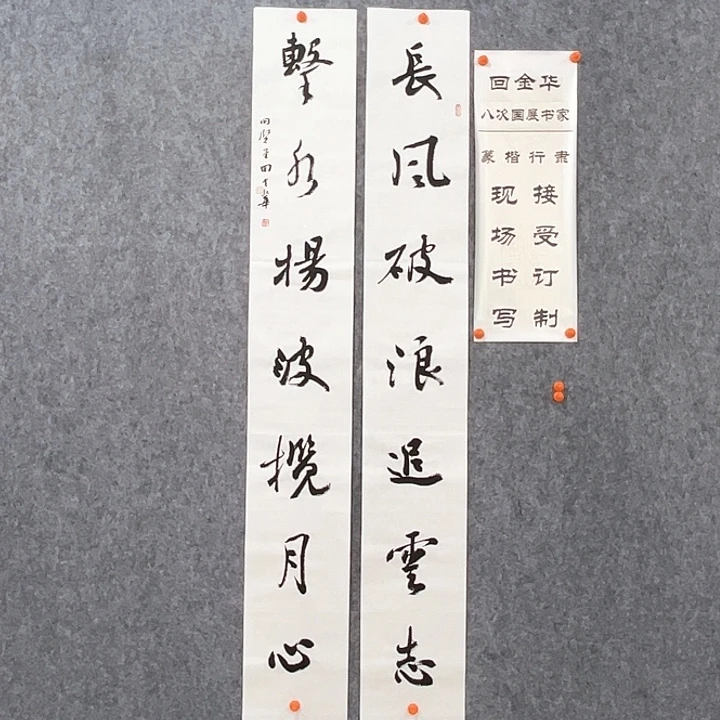 回金华
八次国展书家
篆楷行隶
接受订制
现场书写
長風破浪追雲志
擊水揚波攬月心
回金華